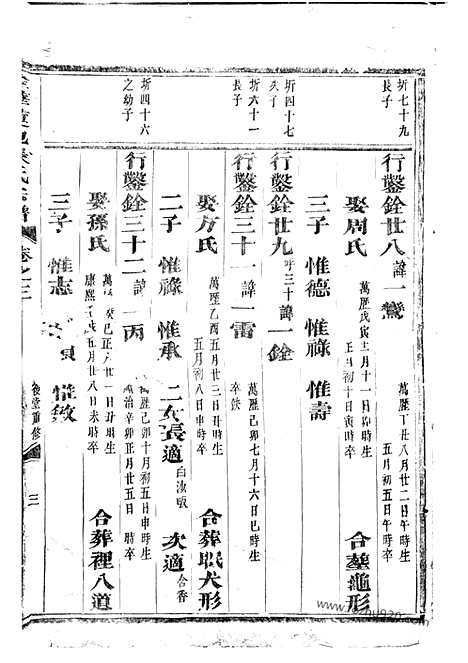 圻七十九
長子
行鑿銓廿八諱一鸞
萬歷丁丑八月廿二日午時生
五月初五日午時卒
娶周氏
萬歷戊寅三月十一日卯時生
正月初十日寅時卒
合塟龜形
三子 惟德 惟祿 惟壽
圻四十七
次子
行鑿銓廿九
三十諱一銓
圻六十一
長子
行鑿銓三十一諱一雷
萬歷己卯七月十六日巳時生
卒缺
娶方氏
萬歷乙酉五月廿三日丑時生
五月初八日申時卒
合葬眠犬形
二子 惟祿 惟承 二女長適
次適
合香
圻四十六
之幼子
行鑿銓三十二諱一丙
萬歷己卯十月初五日申時生
順治辛卯正月廿五日 時卒
娶孫氏
萬 癸巳正 廿一日丑時生
康熙 五月廿八日未時卒
合葬裡八道
三子 惟志 惟敘
氏宗譜
卷之三
後堂重修
三